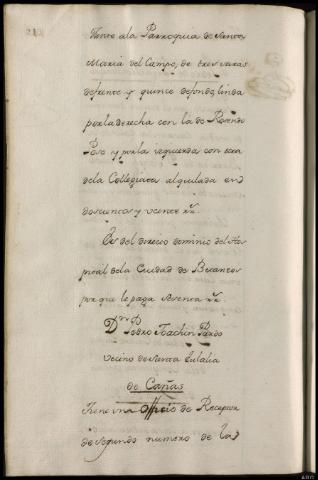 frente ala Parroquia de Santa
Maria del Campo, de tres varas
de frente y quince de fondo, linda
por la derecha con la de Rosendo
Pose y por la izquierda con otra
dela Collegiata alquilada en
doscientos y veinte rr.
Es del directo dominio del Hos
pital dela Ciudad de Betanzos
por que le paga sesenta rr.
Dn Pedro Joachin Pardo
Vecino de Santa Eulalia
de Cañas
Tiene un Officio de Receptor
de segundo numero de la